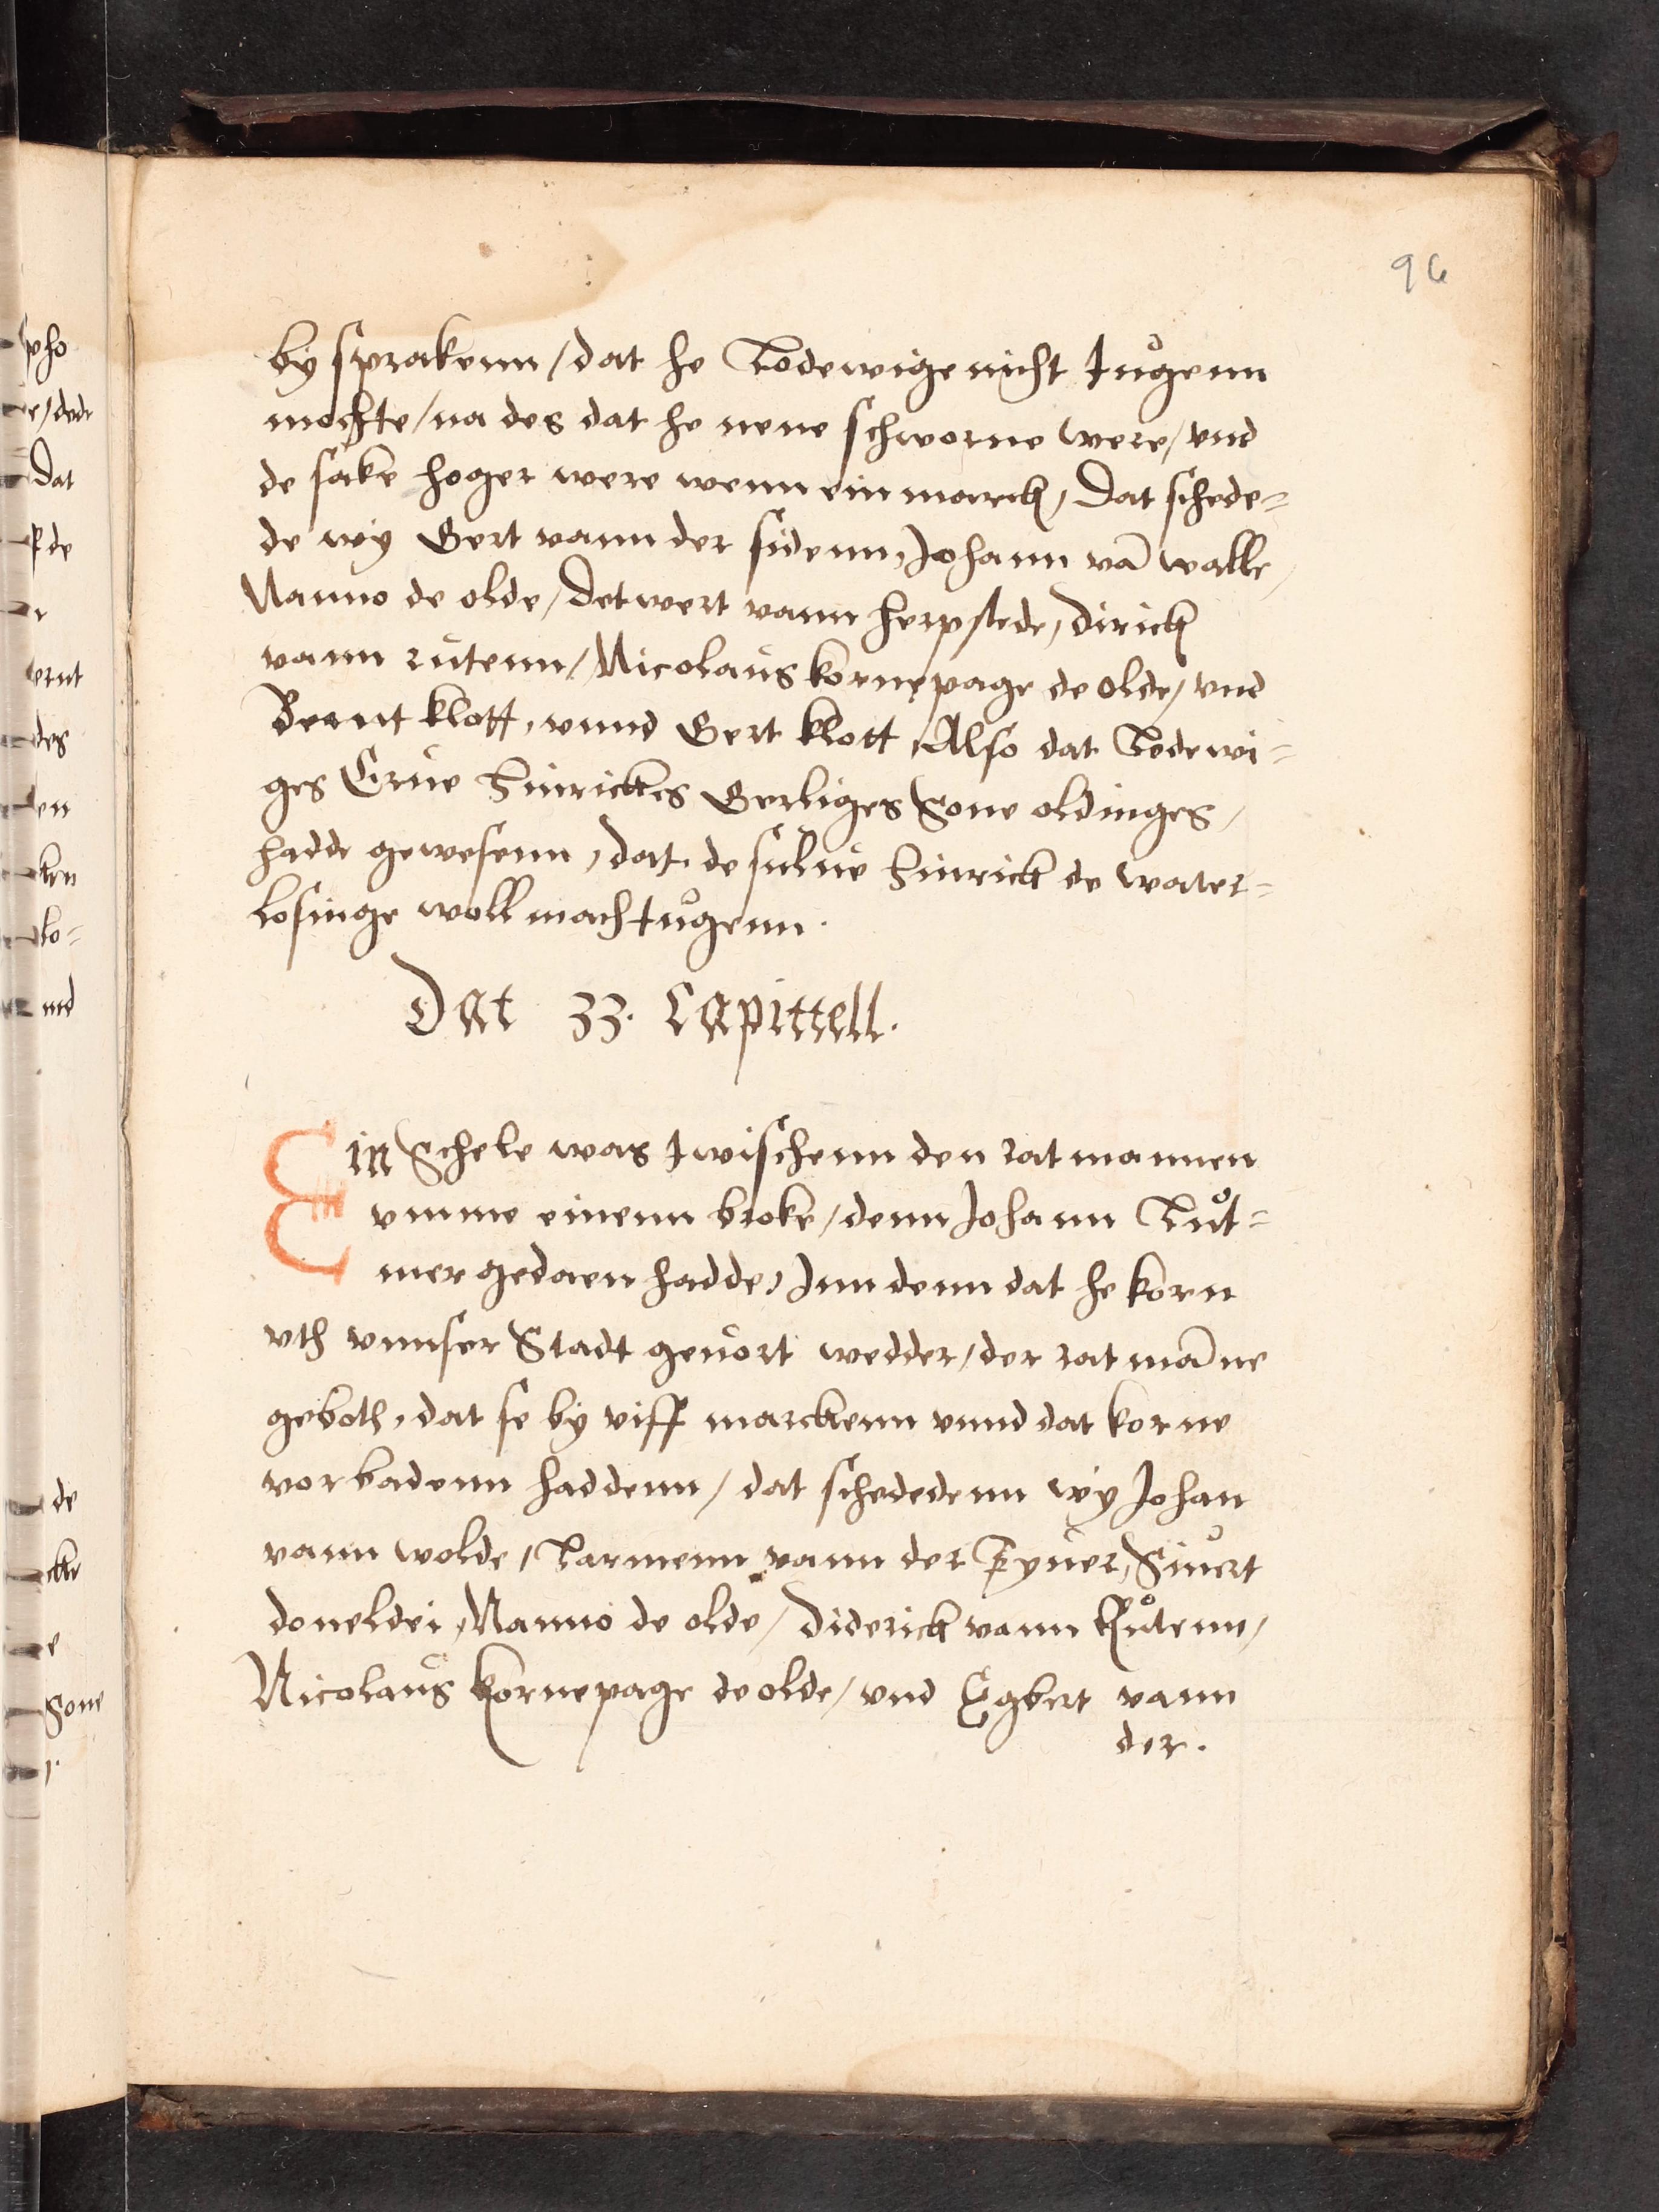 96
by sprakenn / dat he Lodewige nicht tůgenn
mochte / na des dat he nene schworne were / vnd
de sake hoger were wenn ein march, Dat schede=
de wy Gert vann der sidenn, Johann vā walle,
Nanno de olde / Detwert vann herpstede, dirich
vann rutenn / Nicolaus kornepage de olde / vnd
Bernt klott, vnnd Gert klott, Also dat Lodewi=
ges Erue Hinrickes Gerliges Sone oldinges,
hadde gewesenn, dat de sulue Hinrick de water=
losinge woll mach tůgenn.
Dat 33. Capittell.
Ein Schele was twischenn den rat mannen
vmme einenn broke / denn Johann Lůt=
mer gedaen hadde, Inn denn dat he korn
vth vnnser Stadt geuort wedder / der rat māne
geboth, dat se by viff marckenn vnnd dat korne
vorbadenn haddenn / dat schededenn wy Johan
vann wolde, Karmenn vann der Tyuer, Siuert
doneldei, Nanno de olde / Diderick vann Růtenn /
Nicolaus kornepage de olde / vnd Egbert vann
der.
pho
r / dede
Dat
de
ernt
des
en
ken
lo=
nd
de
ckte
e
Sone